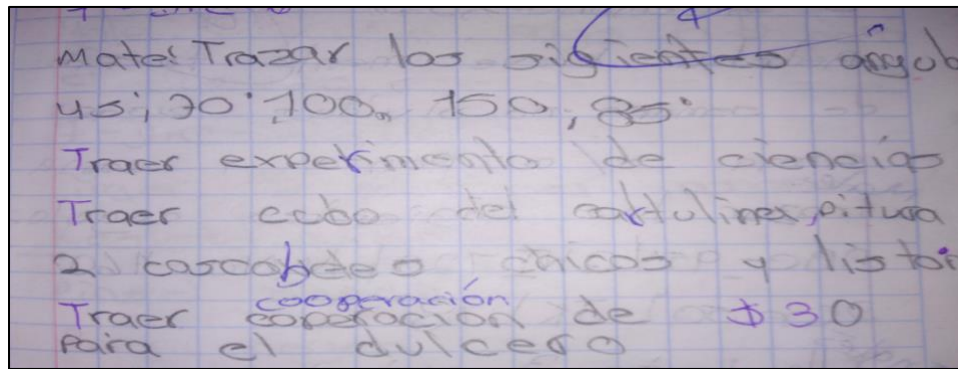 Mate: Trazar los sigientes ángul
45°, 70°, 100, 150, 85°
Traer experimento de ciencias
Traer cubo de cartulina, pitura
2 cascabeles chicos y listo
cooperación
Traer coperación de $30
Para el dulcero